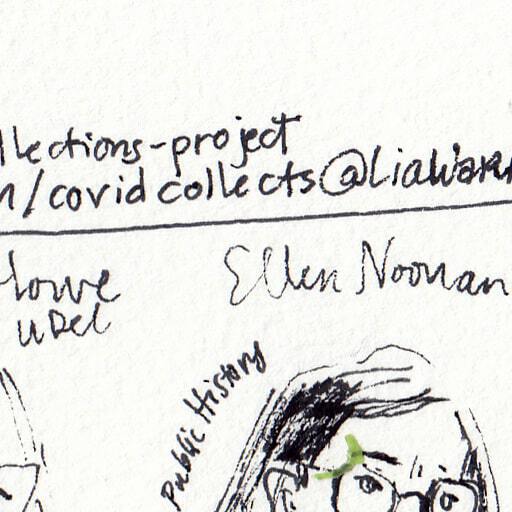 llections-project
n/covidcollects@LiaWarn
Howe
UDel
Ellen Noonan
Public History